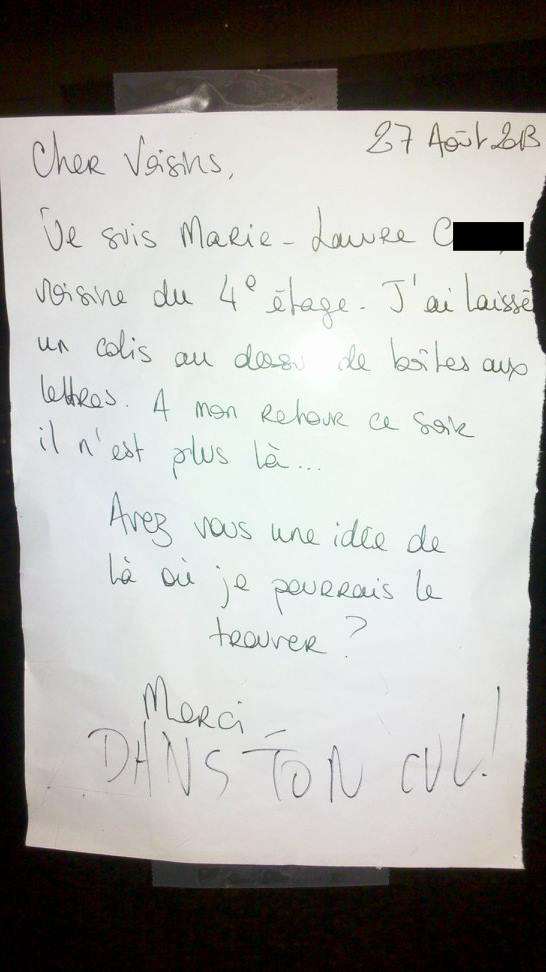 27 Août 2013
Cher Voisins,
Je suis Marie-Laure C
voisine du 4e étage. J'ai laissé
un colis au dessu de boîtes aux
lettres. A mon retour ce soir
il n'est plus là...
Avez vous une idée de
là où je pourrais le
trouver ?
Merci
DANS TON CUL!